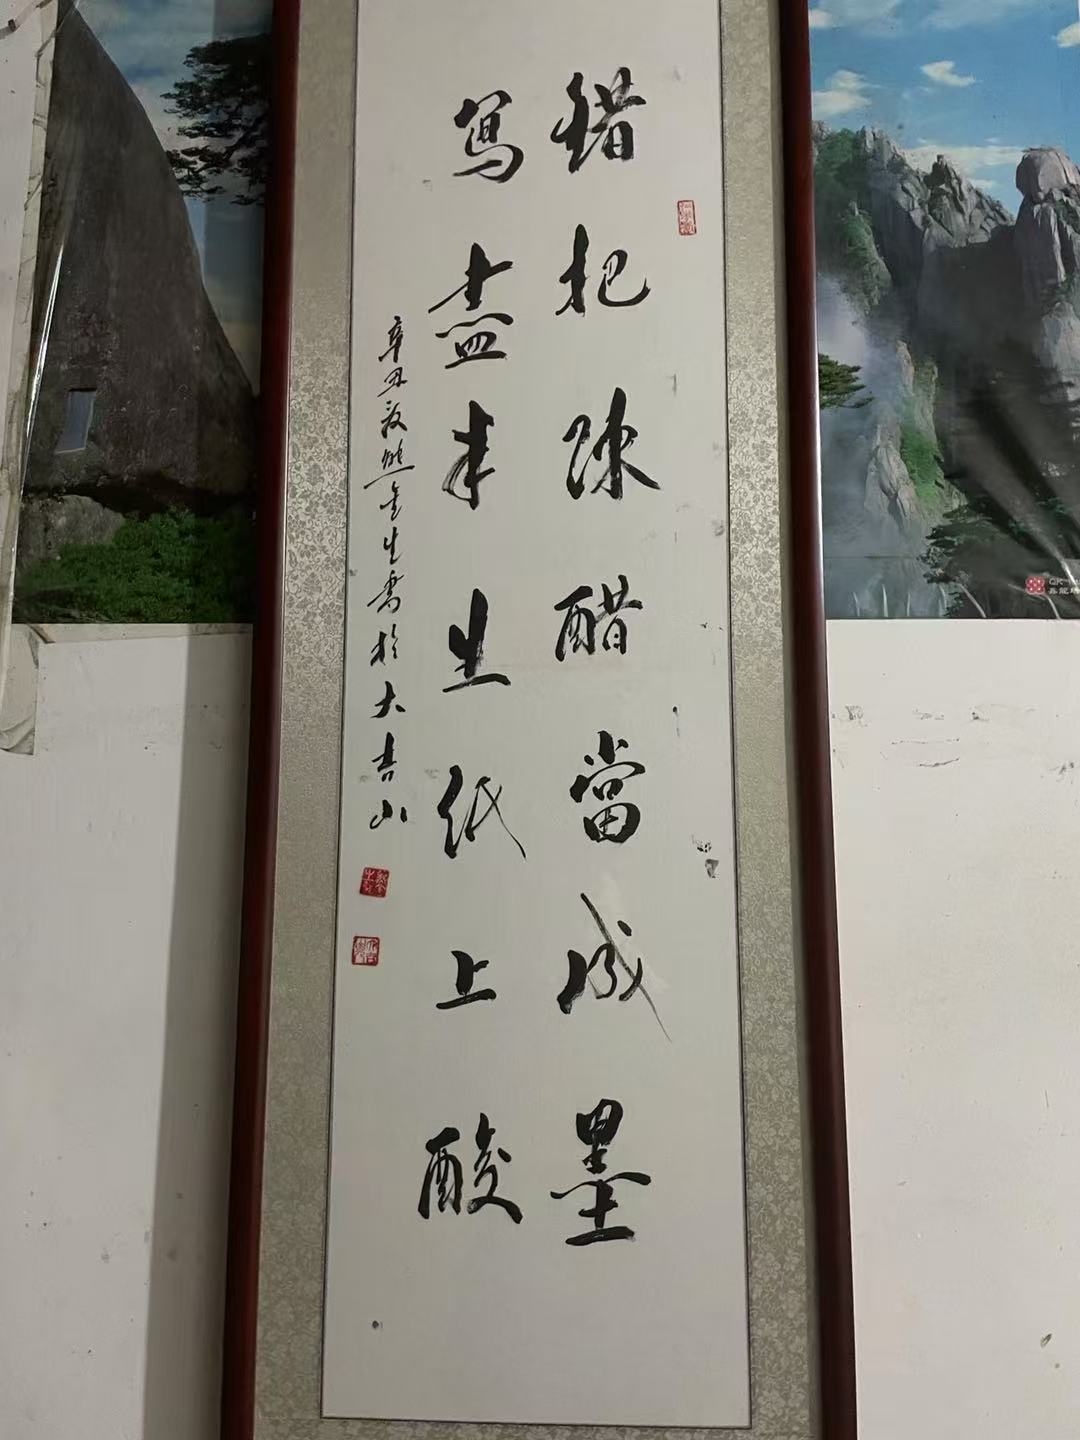 錯把陳醋當成墨
寫盡半生紙上酸
辛丑秋熊金生書於大青山
QK